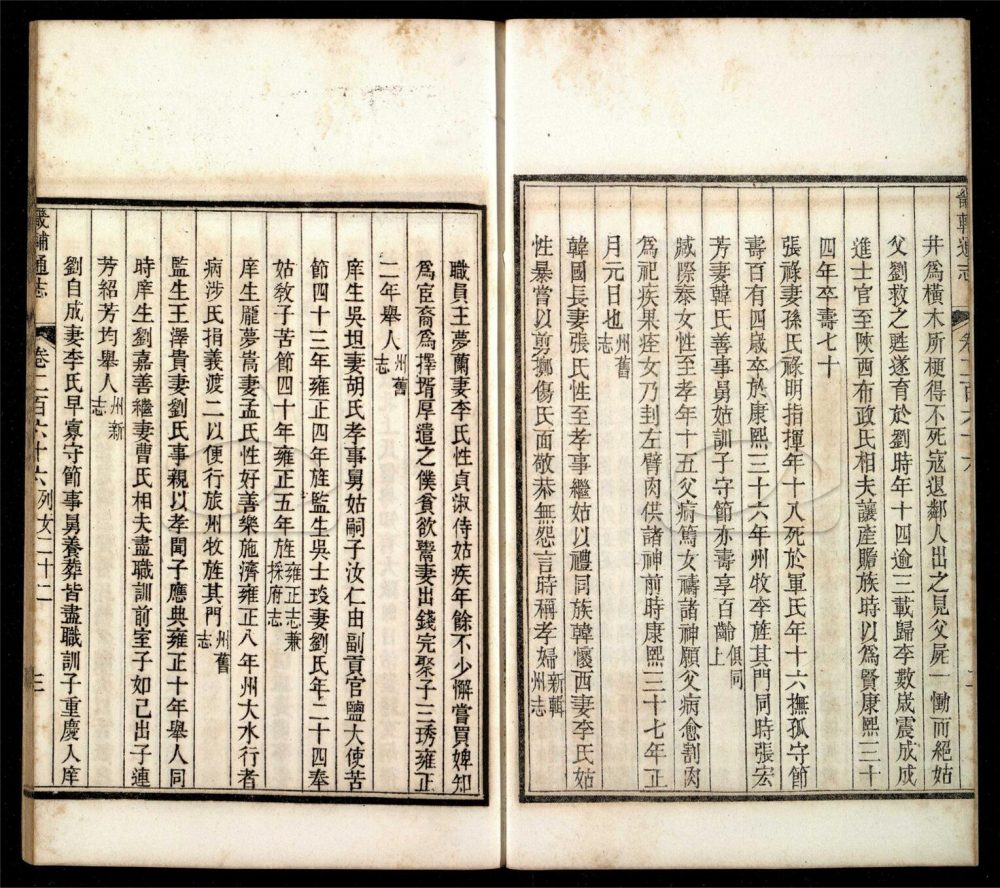 畿輔通志
井爲橫木所梗得不死寇退鄰人出之見父屍一慟而絕姑
父劉救之甦遂育於劉時年十四逾三載歸李數歲震成成
進士官至陝西布政氏相夫讓產贍族時以爲賢康熙三十
四年卒壽七十
張祿妻孫氏祿明指揮年十八死於軍氏年十六撫孤守節
壽百有四歲卒於康熙三十六年州牧李旌其門同時張宏
芳妻韓氏善事舅姑訓子守節亦壽享百齡俱同上
臧際泰女性至孝年十五父病篤女禱諸神願父病愈割肉
爲祀疾果痊女乃刲左臂肉供諸神前時康熙三十七年正
月元日也州舊志
韓國長妻張氏性至孝事繼姑以禮同族韓懷西妻李氏姑
性暴嘗以剪擲傷氏面敬恭無怨言時稱孝婦新輯州志
職員王夢蘭妻李氏性貞淑侍姑疾年餘不少懈嘗買婢知
爲宦裔爲擇壻厚遣之僕貧欲鬻妻出錢完聚子三琇雍正
二年舉人州舊志
庠生吳坦妻胡氏孝事舅姑嗣子汝仁由副貢官鹽大使苦
節四十三年雍正四年旌監生吳士琰妻劉氏年二十四奉
姑敎子苦節四十年雍正五年旌雍正志兼採府志
庠生龎夢嵩妻孟氏性好善樂施濟雍正八年州大水行者
病涉氏捐義渡二以便行旅州牧旌其門州舊志
監生王澤貴妻劉氏事親以孝聞子應典雍正十年舉人同
時庠生劉嘉善繼妻曹氏相夫盡職訓前室子如己出子連
芳紹芳均舉人州新志
劉自成妻李氏早寡守節事舅養葬皆盡職訓子重慶入庠
畿輔通志 卷二百六十六 列女二十二 三